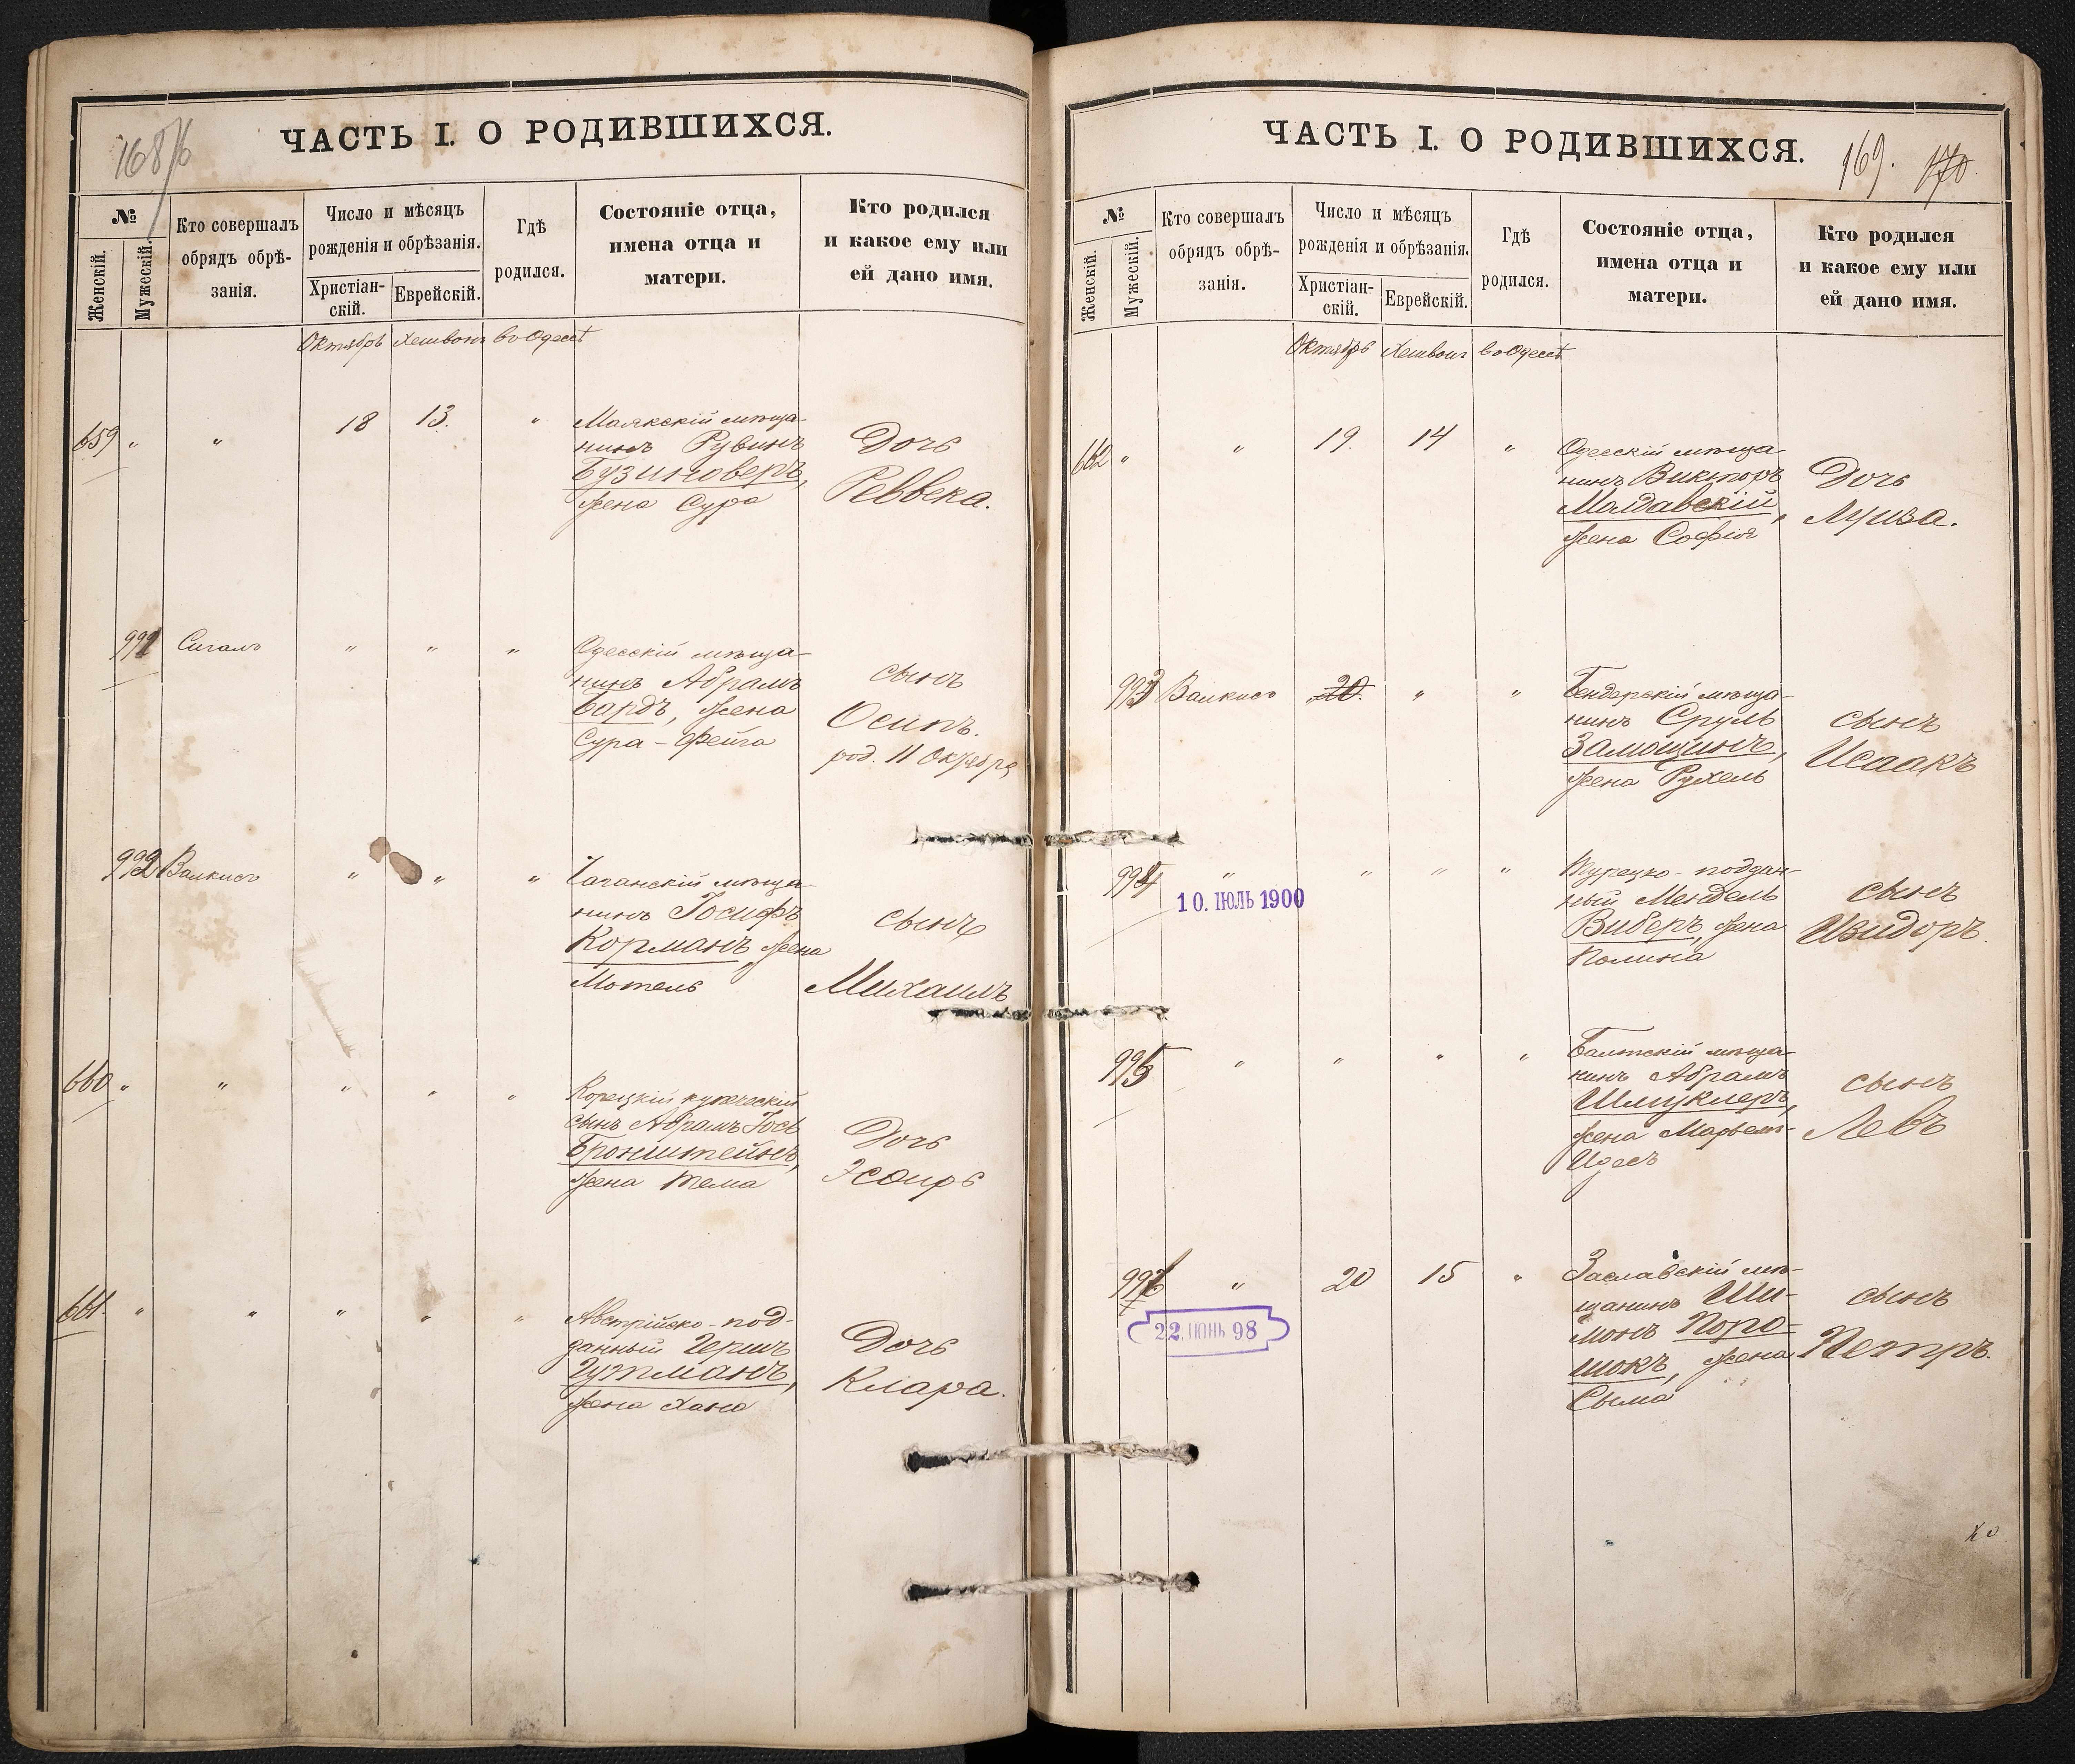 168
ЧАСТЬ I. О РОДИВШИХСЯ.
№
Женскій.
Мужескій.
Кто совершалъ
обрядъ обрѣ-
занія.
Число и мѣсяцъ
рожденія и обрѣзанія.
Христіан-
скій.
Еврейскій.
Гдѣ
родился.
Состояніе отца,
имена отца и
матери.
Кто родился
и какое ему или
ей дано имя.
Октябрь Хешвонъ во Одессѣ
659 " " 18 13. "
Маякскій мѣща-
нинъ Рувинъ
Бузиноверъ,
жена Сура
Дочь
Реввека.
991 Сигалъ " " "
Одесскій мѣща-
нинъ Абрамъ
Бардъ, жена
Сура-Фейга
сынъ
Осипъ.
род. 11 Октября
992 Валкисъ " " "
мѣща-
нинъ Іосифъ
Корманъ, жена
Мотель
сынъ
Михаилъ
660 " " " " "
Корецкій купеческій
сынъ Абрамъ Іось
Бронштейнъ,
жена Тема
Дочь
Эсѳирь
661. " " " " "
Австрійско-под-
данный Гершъ
Гутманъ,
жена Хана
Дочь
Клара.
ЧАСТЬ I. О РОДИВШИХСЯ.
169. 170.
№
Женскій.
Мужескій.
Кто совершалъ
обрядъ обрѣ-
занія.
Число и мѣсяцъ
рожденія и обрѣзанія.
Христіан-
скій.
Еврейскій.
Гдѣ
родился.
Состояніе отца,
имена отца и
матери.
Кто родился
и какое ему или
ей дано имя.
Октябрь Хешвонъ во Одессѣ
662 " " 19. 14 "
Одесскій мѣща-
нинъ Викторъ
Молдавскій,
жена Софія
Дочь
Луиза.
993 Валкисъ 20 " "
Бендерскій мѣща-
нинъ Сруль
Замощинъ,
жена Рухель
сынъ
Исаакъ
994 " " " "
10. ІЮЛЬ 1900
Турецко-поддан-
ный Мендель
Виберъ, жена
Полина
сынъ
Изидоръ.
995 " " " "
Балтскій мѣща-
нинъ Абрамъ
Шмуклеръ,
жена
Идесъ
сынъ
Левъ
996 " 20 15 "
22. ІЮНЬ 98
Заславскій мѣ-
щанинъ Ши-
монъ Поро-
шокъ, жена
Сыма
сынъ
Петръ.